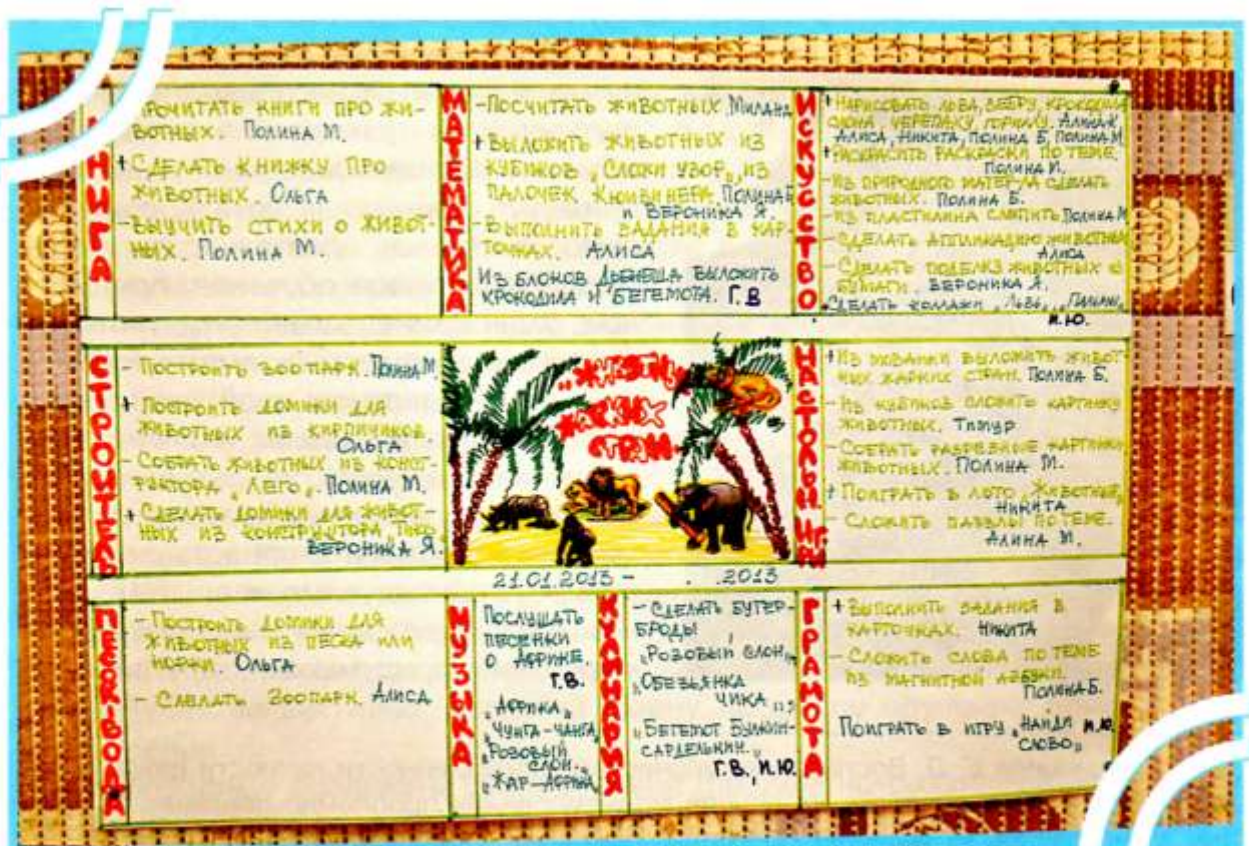 КНИГА
-ПРОЧИТАТЬ КНИГИ ПРО ЖИ-
ВОТНЫХ. ПОЛИНА М.
+ СДЕЛАТЬ КНИЖКУ ПРО
ЖИВОТНЫХ. ОЛЬГА
- ВЫУЧИТЬ СТИХИ О ЖИВОТ-
НЫХ. ПОЛИНА М.
МАТЕМАТИКА
-ПОСЧИТАТЬ ЖИВОТНЫХ. МИЛАНА
+ ВЫЛОЖИТЬ ЖИВОТНЫХ ИЗ
КУБИКОВ „СЛОЖИ УЗОР", ИЗ
ПАЛОЧЕК КЮИЗИНЕРА. ПОЛИНА Б
И ВЕРОНИКА Я.
- ВЫПОЛНИТЬ ЗАДАНИЯ В КАР-
ТОЧКАХ. АЛИСА
ИЗ БЛОКОВ ДЬЕНЕША ВЫЛОЖИТЬ
КРОКОДИЛА И БЕГЕМОТА. Г.В
ИСКУССТВО
+ НАРИСОВАТЬ ЛЬВА, ЗЕБРУ, КРОКОДИЛА
СЛОНА, ЧЕРЕПАХУ, ГОРИЛЛУ. АЛИНА
АЛИСА, НИКИТА, ПОЛИНА Б, ПОЛИНА М
+ РАСКРАСИТЬ РАСКРАСКИ ПО ТЕМЕ
ПОЛИНА М.
- ИЗ ПРИРОДНОГО СДЕЛАТЬ
ЖИВОТНЫХ. ПОЛИНА Б.
- ИЗ ПЛАСТИЛИНА СЛЕПИТЬ ПОЛИНА М
- СДЕЛАТЬ АППЛИКАЦИЮ
АЛИСА
- СДЕЛАТЬ ЖИВОТНЫХ ИЗ
БУМАГИ. ВЕРОНИКА Я.
СДЕЛАТЬ КОЛЛАЖИ
И.Ю.
СТРОИТЕЛЬ
- ПОСТРОИТЬ ЗООПАРК. ПОЛИНА М
+ ПОСТРОИТЬ ДОМИКИ ДЛЯ
ЖИВОТНЫХ ИЗ КИРПИЧИКОВ.
ОЛЬГА
- СОБРАТЬ ЖИВОТНЫХ ИЗ КОНСТ-
РУКТОРА „ЛЕГО". ПОЛИНА М.
+ СДЕЛАТЬ ДОМИКИ ДЛЯ ЖИВОТ-
НЫХ ИЗ КОНСТРУКТОРА
ВЕРОНИКА Я.
ЖАРКИХ
СТРАН
НАСТОЛЬН. ИГРЫ
+ ИЗ МОЗАИКИ ВЫЛОЖИТЬ ЖИВОТ-
НЫХ ЖАРКИХ СТРАН. ПОЛИНА Б.
- ИЗ КУБИКОВ СЛОЖИТЬ КАРТИНКУ
ЖИВОТНЫХ. ТИМУР
- СОБРАТЬ РАЗРЕЗНЫЕ КАРТИНКИ
ЖИВОТНЫХ. ПОЛИНА М.
+ ПОИГРАТЬ В ЛОТО „ЖИВОТНЫЕ"
НИКИТА
- СЛОЖИТЬ ПАЗЛЫ ПО ТЕМЕ.
АЛИНА М.
21.01.2013 - . .2013
ПЕСОК-ВОДА
- ПОСТРОИТЬ ДОМИКИ ДЛЯ
ЖИВОТНЫХ ИЗ ПЕСКА ИЛИ
НОРКИ. ОЛЬГА
- СДЕЛАТЬ ЗООПАРК. АЛИСА
МУЗЫКА
ПОСЛУШАТЬ
ПЕСЕНКИ
О АФРИКЕ.
Г.В.
„АФРИКА"
„ЧУНГА-ЧАНГА"
„РОЗОВЫЙ
СЛОН"
„ЖАР-АФРИКА"
КУЛИНАРИЯ
- СДЕЛАТЬ БУТЕР-
БРОДЫ
„РОЗОВЫЙ СЛОН"
„ОБЕЗЬЯНКА
ЧИКА",
„БЕГЕМОТ БУЛКИН-
САРДЕЛЬКИН"
Г.В., И.Ю.
ГРАМОТА
+ ВЫПОЛНИТЬ ЗАДАНИЯ В
КАРТОЧКАХ. НИКИТА
- СЛОЖИТЬ СЛОВА ПО ТЕМЕ
ИЗ МАГНИТНОЙ АЗБУКИ.
ПОЛИНА Б.
ПОИГРАТЬ В ИГРУ „НАЙДИ И.Ю.
СЛОВО"